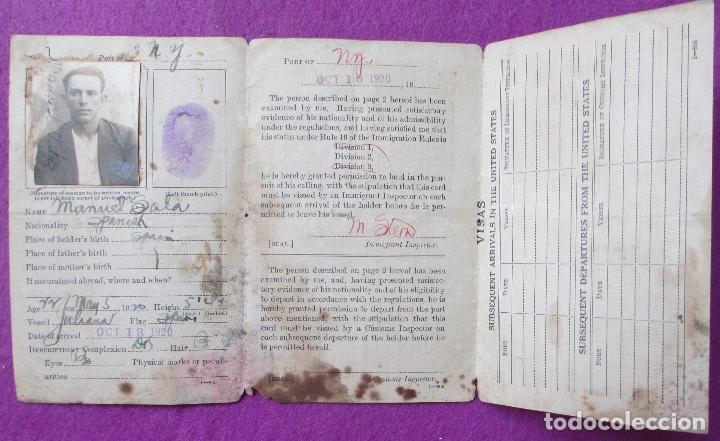 Port of N Y
(Signature of seaman to be written across
lower left-hand corner of photograph.)
(Left thumb print.)
NAME Manuel Sala
Nationality Spanish
Place of holder's birth Spain
Place of father's birth
Place of mother's birth
If naturalized abroad, where and when?
Age 22 on May 5 1920 Height 5
Vessel Flag Spain
Date of arrival OCT 13 1920
DESCRIPTION: Complexion Hair
Eyes Physical marks or peculi-
arities
PORT OF N.y.
OCT 13 1920 , 19
The person described on page 2 hereof has been
examined by me. Having presented satisfactory
evidence of his nationality and of his admissibility
under the regulations, and having satisfied me that
his status under Rule 10 of the Immigration Rules is
Division 1,
Division 2,
Division 3,
he is hereby granted permission to land in the pursuit
of his calling, with the stipulation that this card
must be vised by an Immigrant Inspector on each
subsequent arrival of the holder before he is permitted
to leave his vessel.
[SEAL.] Immigrant Inspector.
The person described on page 2 hereof has been
examined by me, and, having presented satisfactory
evidence of his nationality and of his eligibility
to depart in accordance with the regulations, he is
hereby granted permission to depart from the port
above mentioned, with the stipulation that this
card must be vised by a Customs Inspector on
each subsequent departure of the holder before he
is permitted to sail.
[SEAL.] Customs Inspector.
VISAS
SUBSEQUENT ARRIVALS IN THE UNITED STATES
PORT DATE VESSEL SIGNATURE OF IMMIGRANT INSPECTOR
SUBSEQUENT DEPARTURES FROM THE UNITED STATES
PORT DATE VESSEL SIGNATURE OF CUSTOMS INSPECTOR
todocoleccion.net